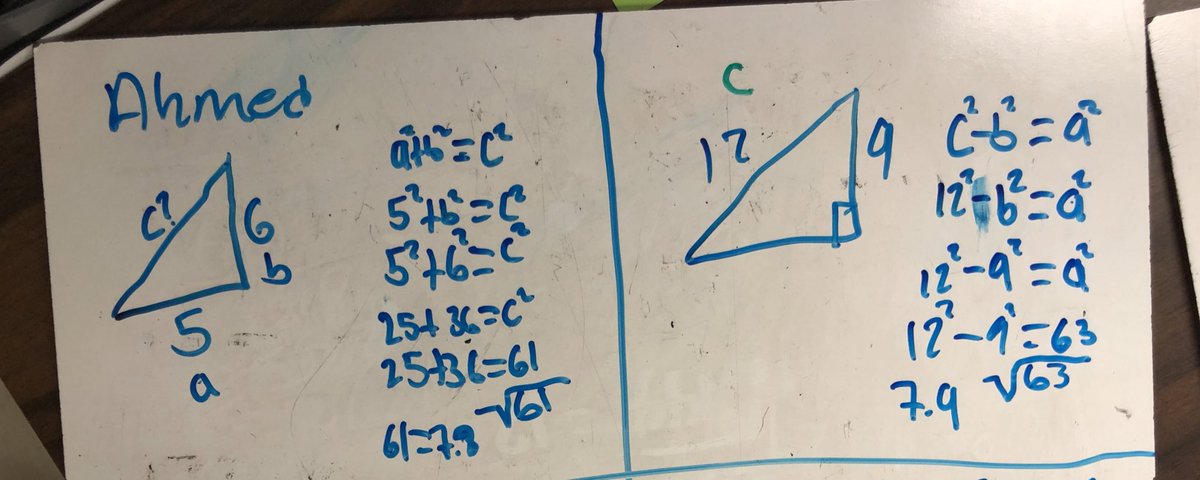 Ahmed
c?
6
b
5
a
a²+b²=c²
5²+b²=c²
5²+6²=c²
25+36=c²
25+36=61
√61
61=7.8
c
12
9
c²-b²=a²
12²-b²=a²
12²-9²=a²
12²-9²=63
√63
7.9